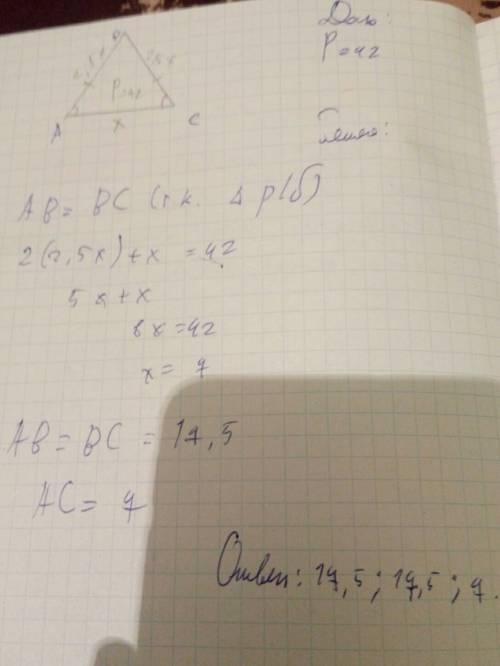 Дано:
P=42
B
2,5x
2,5x
P=42
A
x
C
AB = BC (т.к. Δ р/б)
2(2,5x)+x = 42
5x+x
6x=42
x= 7
AB = BC = 17,5
AC= 7
Ответ: 17,5; 17,5; 7.